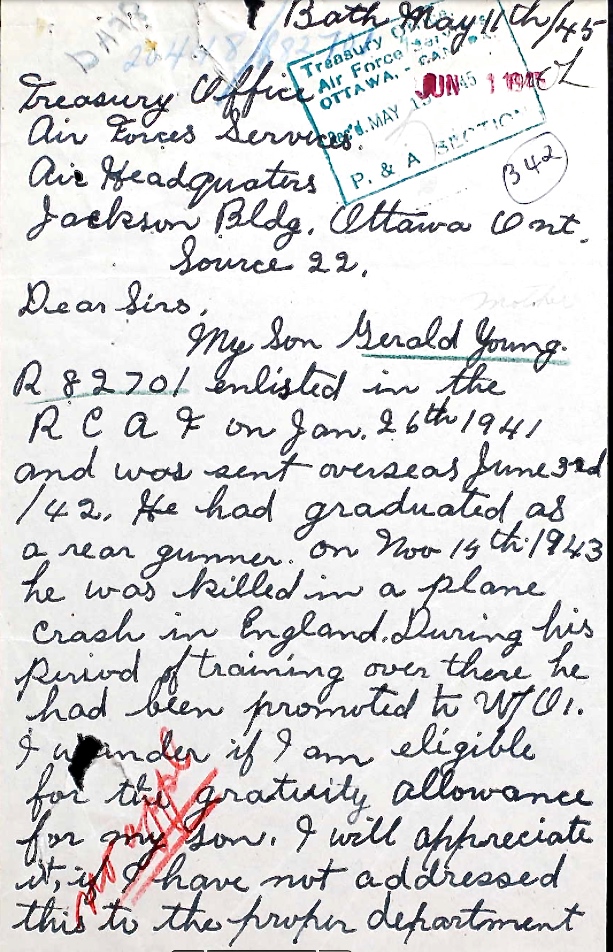 Bath May 11th/45
Treasury Office
Air Forces Services.
Air Headquaters
Jackson Bldg. Ottawa Ont.
Source 22.
Treasury Office
Air Force
OTTAWA. - CAN
Rec'd. MAY
JUN 1 1945
P. & A SECTION
B42
Dear Sirs.
mother
My Son Gerald Young.
R 82701 enlisted in the
R C A F on Jan. 26th 1941
and was sent overseas June 3rd
/42. He had graduated as
a rear gunner. on Nov 14th. 1943
he was killed in a plane
crash in England. During his
period of training over there he
had been promoted to W/O1.
I wander if I am eligible
for the gratuity allowance
for my son. I will appreciate
it, if I have not addressed
this to the proper department
no appl